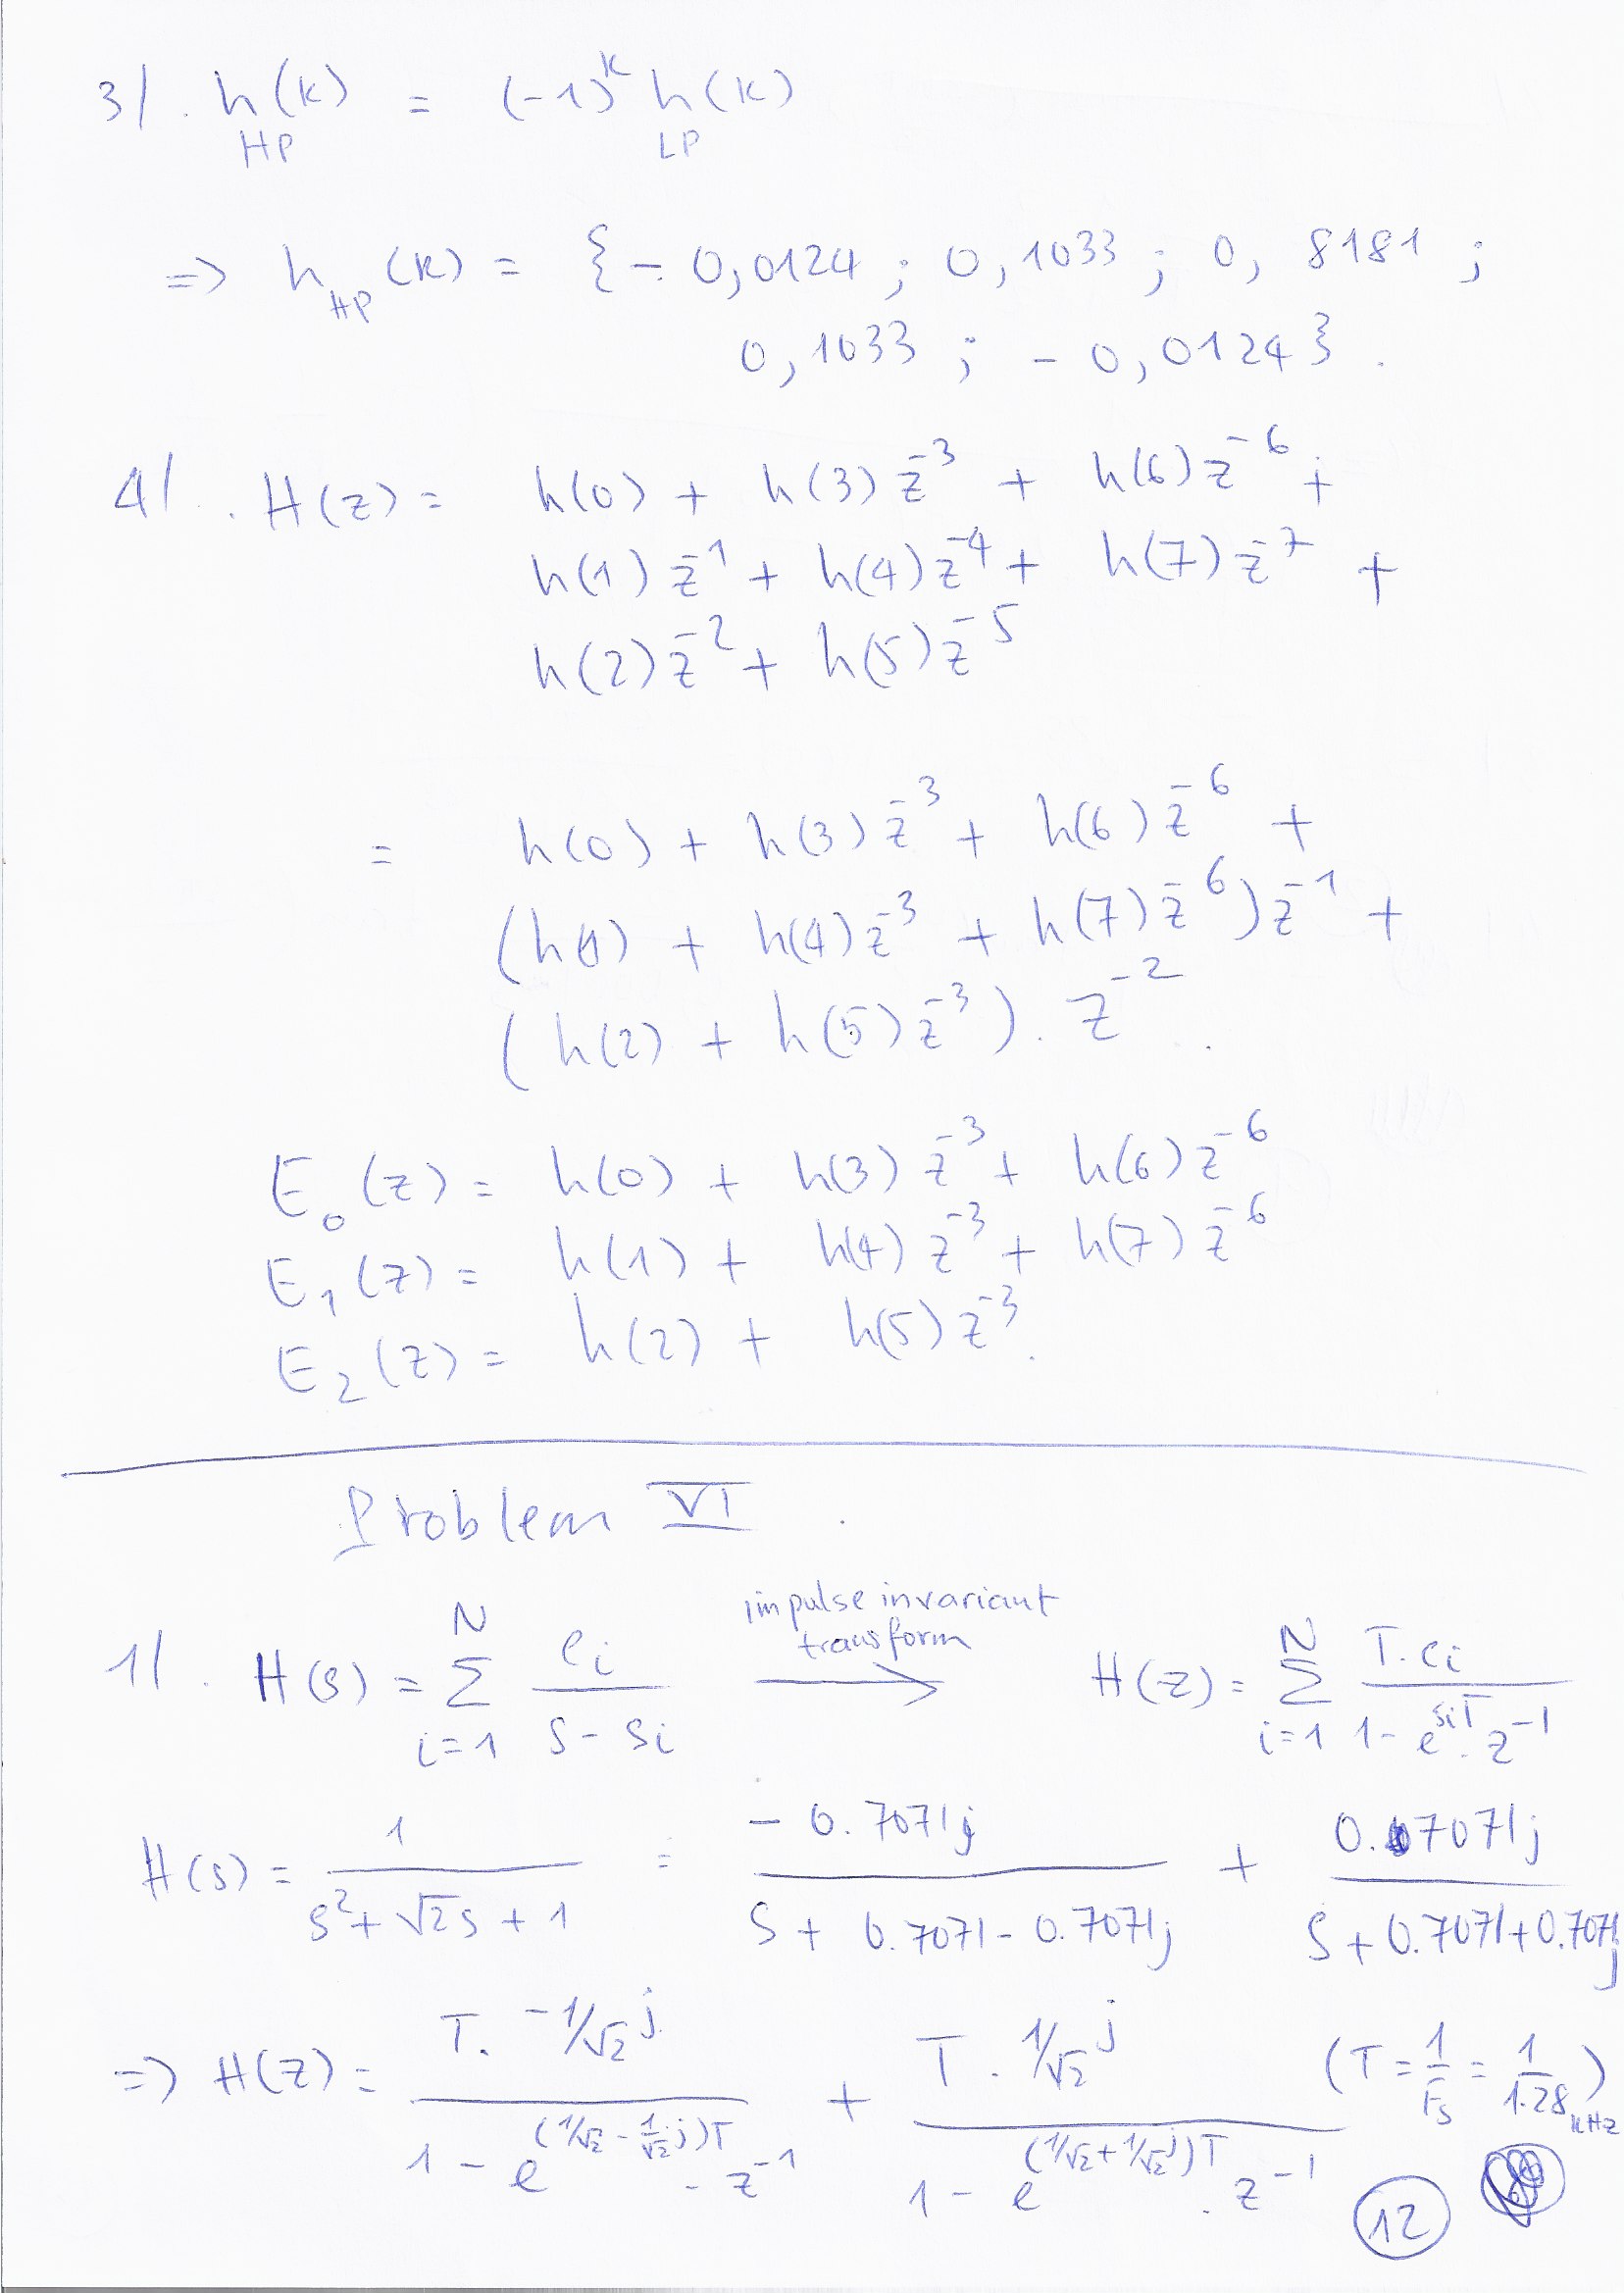 3/. h_HP(k) = (-1)^k h_LP(k)
=> h_HP(k) = {- 0,0124 ; 0,1033 ; 0, 8181 ;
0,1033 ; - 0,0124}.
4/. H(z) = h(0) + h(3) z^-3 + h(6) z^-6 +
h(1) z^-1 + h(4) z^-4 + h(7) z^-7 +
h(2) z^-2 + h(5) z^-5
= h(0) + h(3) z^-3 + h(6) z^-6 +
(h(1) + h(4) z^-3 + h(7) z^-6) z^-1 +
(h(2) + h(5) z^-3) . z^-2 .
E_0(z) = h(0) + h(3) z^-3 + h(6) z^-6
E_1(z) = h(1) + h(4) z^-3 + h(7) z^-6
E_2(z) = h(2) + h(5) z^-3.
Problem VI .
1/. H(s) = Σ_{i=1}^{N} c_i / (s - s_i) impulse invariant transform → H(z) = Σ_{i=1}^{N} T.c_i / (1 - e^{s_i T} . z^-1)
H(s) = 1 / (s^2 + √2 s + 1) = - 0.7071j / (s + 0.7071 - 0.7071j) + 0.7071j / (s + 0.7071 + 0.7071j)
=> H(z) = T. -1/√2 j / (1 - e^{(1/√2 - 1/√2 j)T} . z^-1) + T . 1/√2 j / (1 - e^{(1/√2 + 1/√2 j)T} . z^-1) (T = 1/Fs = 1/1.28 kHz)
12